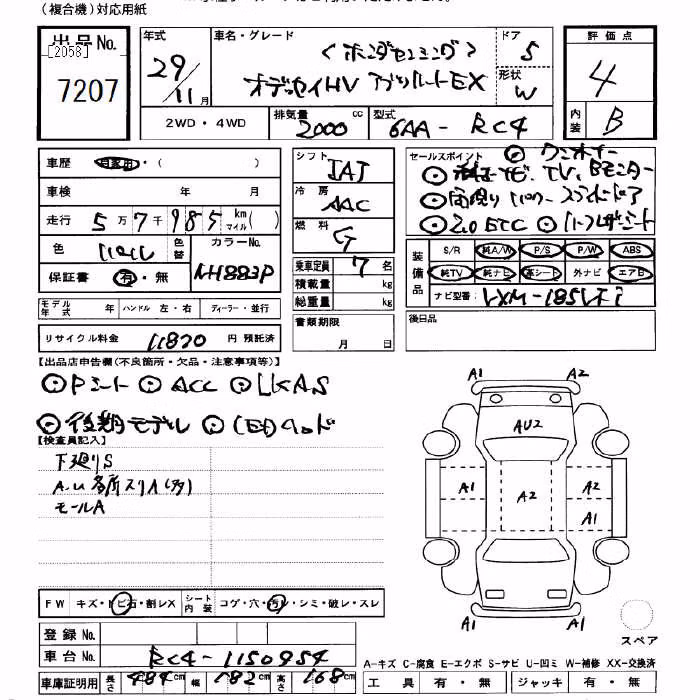 (複合機)対応用紙
出品No.
[2058]
7207
年式
29/11月
車名・グレード
<ホンダセンシング>
オデッセイHV アブソルートEX
ドア
5
形状
W
評価点
4
内装
B
2WD・4WD
排気量
2000
cc
型式
6AA-RC4
車歴
自家用・( )
車検 年 月
走行 5万7千985 km マイル ( )
色
色替
カラーNo.
NH883P
保証書 有・無
モデル年式 年 ハンドル 左・右 ディーラー・並行
リサイクル料金 11820 円 預託済
シフト
IAT
冷房
AAC
燃料
G
乗車定員 7 名
積載量 kg
総重量 kg
書類期限
月 日
セールスポイント ◎ワンオーナー
◎純正ナビ、TV、Bモニター
◎両側パワースライドドア
◎2.0ETC ◎ハーフレザーシート
装備品
S/R 純A/W P/S P/W ABS
純TV 純ナビ 革シート 外ナビ エアB
ナビ型番 VXM-185VFi
後日品
【出品店申告欄(不良箇所・欠品・注意事項等)】
◎Pシート ◎ACC ◎LKAS
◎後期モデル ◎LEDヘッド
【検査員記入】
下廻りS
A.U各所スリA(多)
モールA
FW キズ・トビ石・割レX
シート内装 コゲ・穴・汚レ・シミ・破レ・スレ
登録No.
車台No. RC4-1150954
車庫証明用 長さ 484cm 幅 182cm 高さ 168cm
A1 A2
AU2
A1 A2 A2
A1
A1 A1
スペア
A-キズ C-腐食 E-エクボ S-サビ U-凹ミ W-補修 XX-交換済
工具 有・無 ジャッキ 有・無